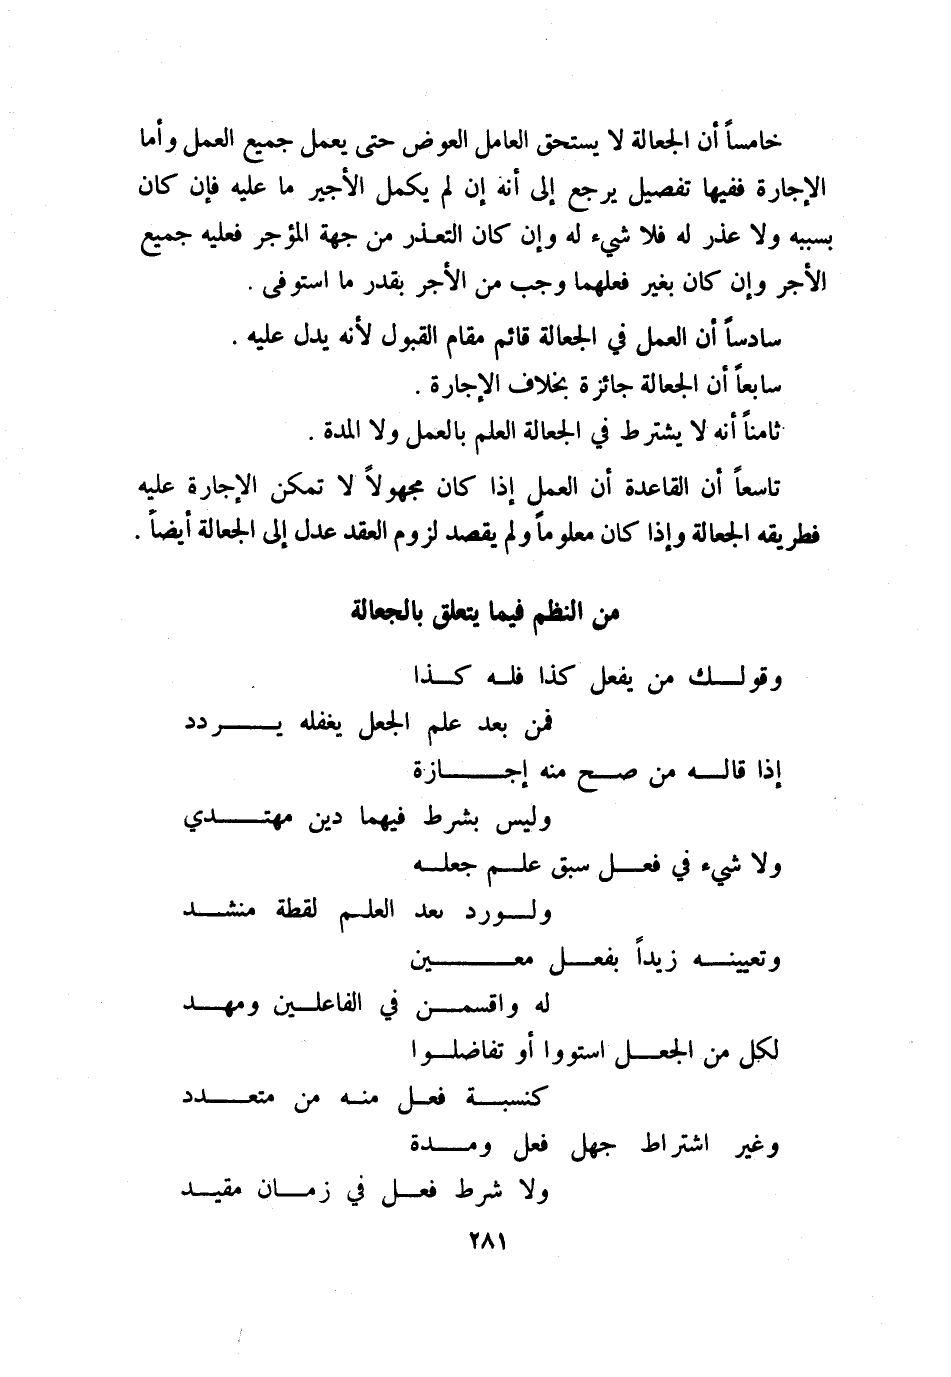 خامساً أن الجعالة لا يستحق العامل العوض حتى يعمل جميع العمل وأما
الإجارة ففيها تفصيل يرجع إلى أنه إن لم يكمل الأجير ما عليه فإن كان
بسببه ولا عذر له فلا شيء له وإن كان التعذر من جهة المؤجر فعليه جميع
الأجر وإن كان بغير فعلهما وجب من الأجر بقدر ما استوفى .
سادساً أن العمل في الجعالة قائم مقام القبول لأنه يدل عليه .
سابعاً أن الجعالة جائزة بخلاف الإجارة .
ثامناً أنه لا يشترط في الجعالة العلم بالعمل ولا المدة .
تاسعاً أن القاعدة أن العمل إذا كان مجهولاً لا تمكن الإجارة عليه
فطريقه الجعالة وإذا كان معلوماً ولم يقصد لزوم العقد عدل إلى الجعالة أيضاً .
من النظم فيما يتعلق بالجعالة
وقولك من يفعل كذا فله كذا
فمن بعد علم الجعل يغفله يردد
إذا قاله من صح منه إجازة
وليس بشرط فيهما دين مهتدي
ولا شيء في فعل سبق علم جعله
ولورد بعد العلم لقطة منشد
وتعيينه زيداً بفعل معين
له واقسمن في الفاعلين ومهد
لكل من الجعل استووا أو تفاضلوا
كنسبة فعل منه من متعدد
وغير اشتراط جهل فعل ومدة
ولا شرط فعل في زمان مقيد
٢٨١